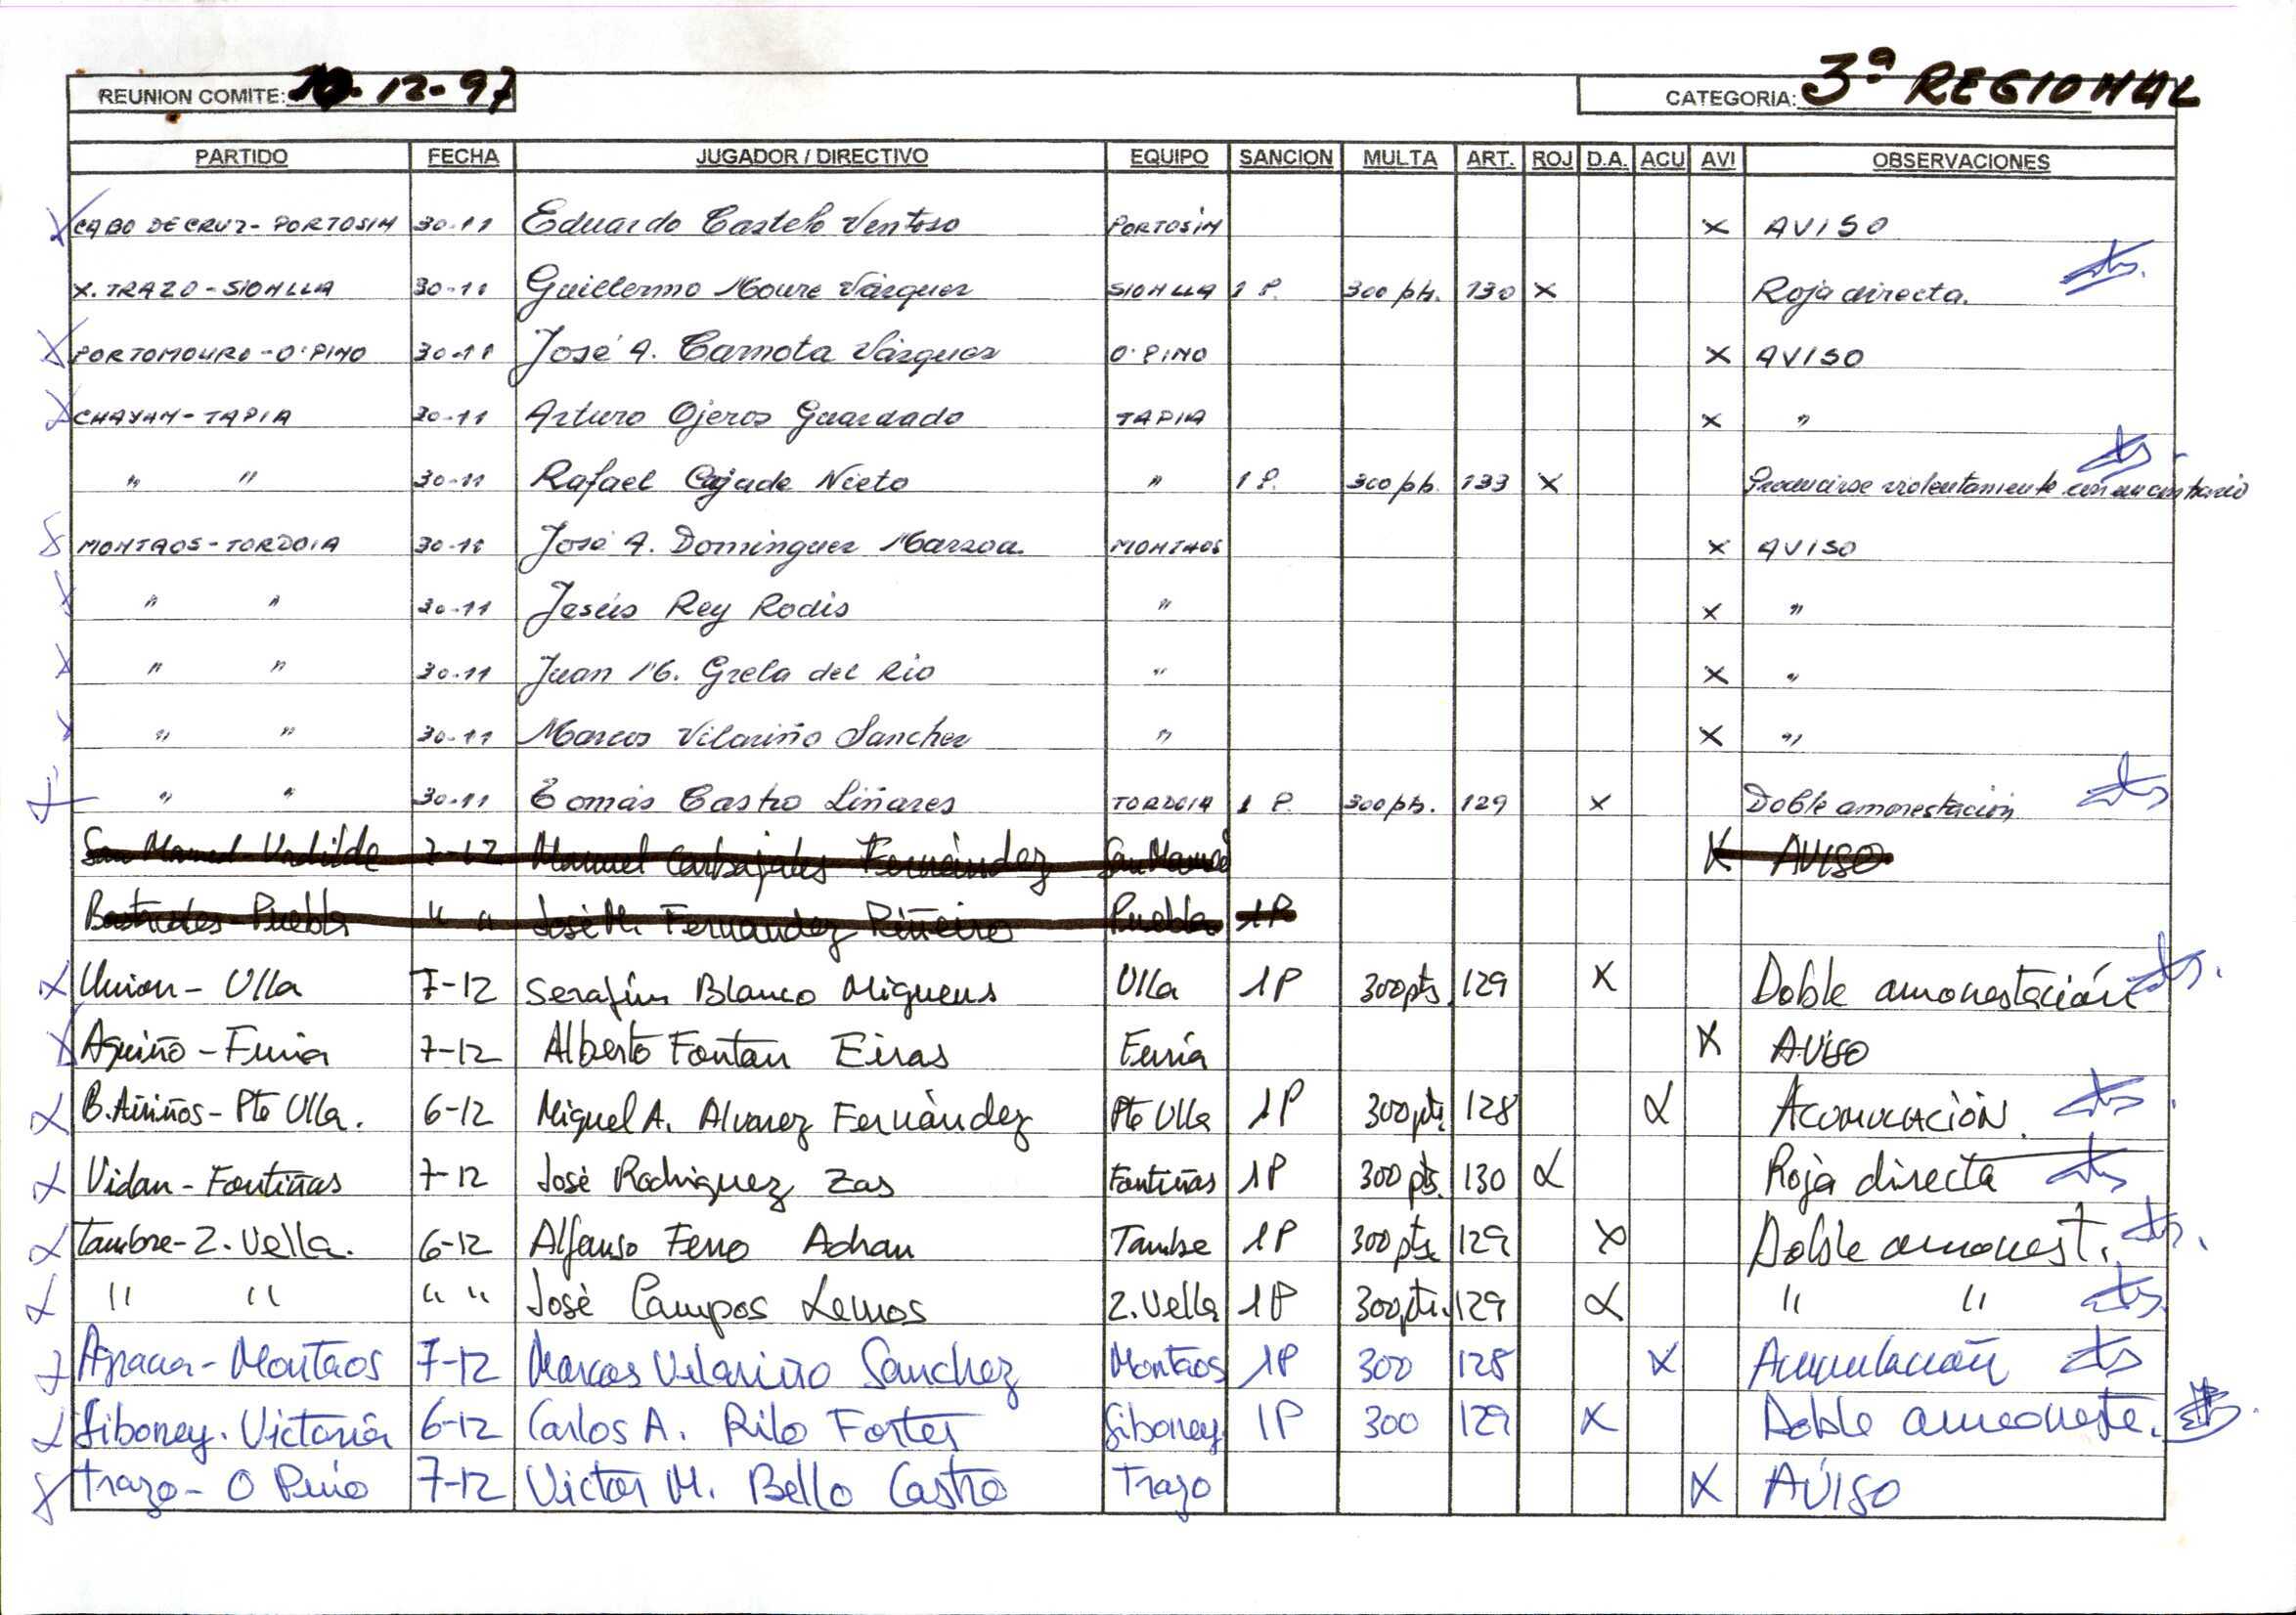 REUNION COMITE: 10-12-97 CATEGORIA: 3ª REGIONAL
PARTIDO FECHA JUGADOR / DIRECTIVO EQUIPO SANCION MULTA ART. ROJ D.A. ACU AVI OBSERVACIONES
X CABO DE CRUZ - PORTOSIN 30-11 Eduardo Castelo Ventoso PORTOSIN X AVISO
X. TRAZO - SIONLLA 30-11 Guillermo Moure Vázquez SIONLLA 1 P. 300 pts. 130 X Roja directa.
X PORTOMOURO - O'PINO 30-11 José A. Carnota Vázquez O'PINO X AVISO
X CHAYAN - TAPIA 30-11 Arturo Ojeros Guardado TAPIA X "
" " 30-11 Rafael Cajade Nieto " 1 P. 300 pts. 133 X Producirse violentamente con un contrario
X MONTAOS - TORDOIA 30-11 José A. Dominguez Marzoa MONTAOS X AVISO
X " " 30-11 Jesús Rey Rodis " X "
X " " 30-11 Juan M. Grela del Rio " X "
X " " 30-11 Marcos Vilariño Sanchez " X "
X " " 30-11 Tomás Castro Liñares TORDOIA 1 P. 300 pts. 129 X Doble amonestación
San Mamed - Urdilde 7-12 Manuel Carbajales Fernández San Mamed X AVISO
Bastavales - Puebla " " José M. Fernandez Piñeiro Puebla 1P
X Union - Ulla 7-12 Serafin Blanco Miguens Ulla 1P 300pts 129 X Doble amonestación
X Aguiño - Furia 7-12 Alberto Fontan Eiras Furia X AVISO
X B. Aññños - Pte Ulla. 6-12 Miguel A. Alvarez Fernández Pte Ulla 1P 300pts 128 X Acomulación.
X Vidan - Fontiñas 7-12 José Rodriguez Zas Fontiñas 1P 300 pts. 130 X Roja directa
X Tambre - Z. Vella. 6-12 Alfonso Ferro Adran Tambre 1P 300 pts 129 X Doble amonest.
X " " " " José Campos Lemos Z. Vella 1P 300pts. 129 X " "
X Agracer - Montaos 7-12 Marcos Vilariño Sanchez Montaos 1P 300 128 X Acumulación
X Siboney - Victoria 6-12 Carlos A. Rilo Fortes Siboney 1P 300 129 X Doble amoneste.
X Trazo - O Pino 7-12 Victor M. Bello Castro Trazo X AVISO